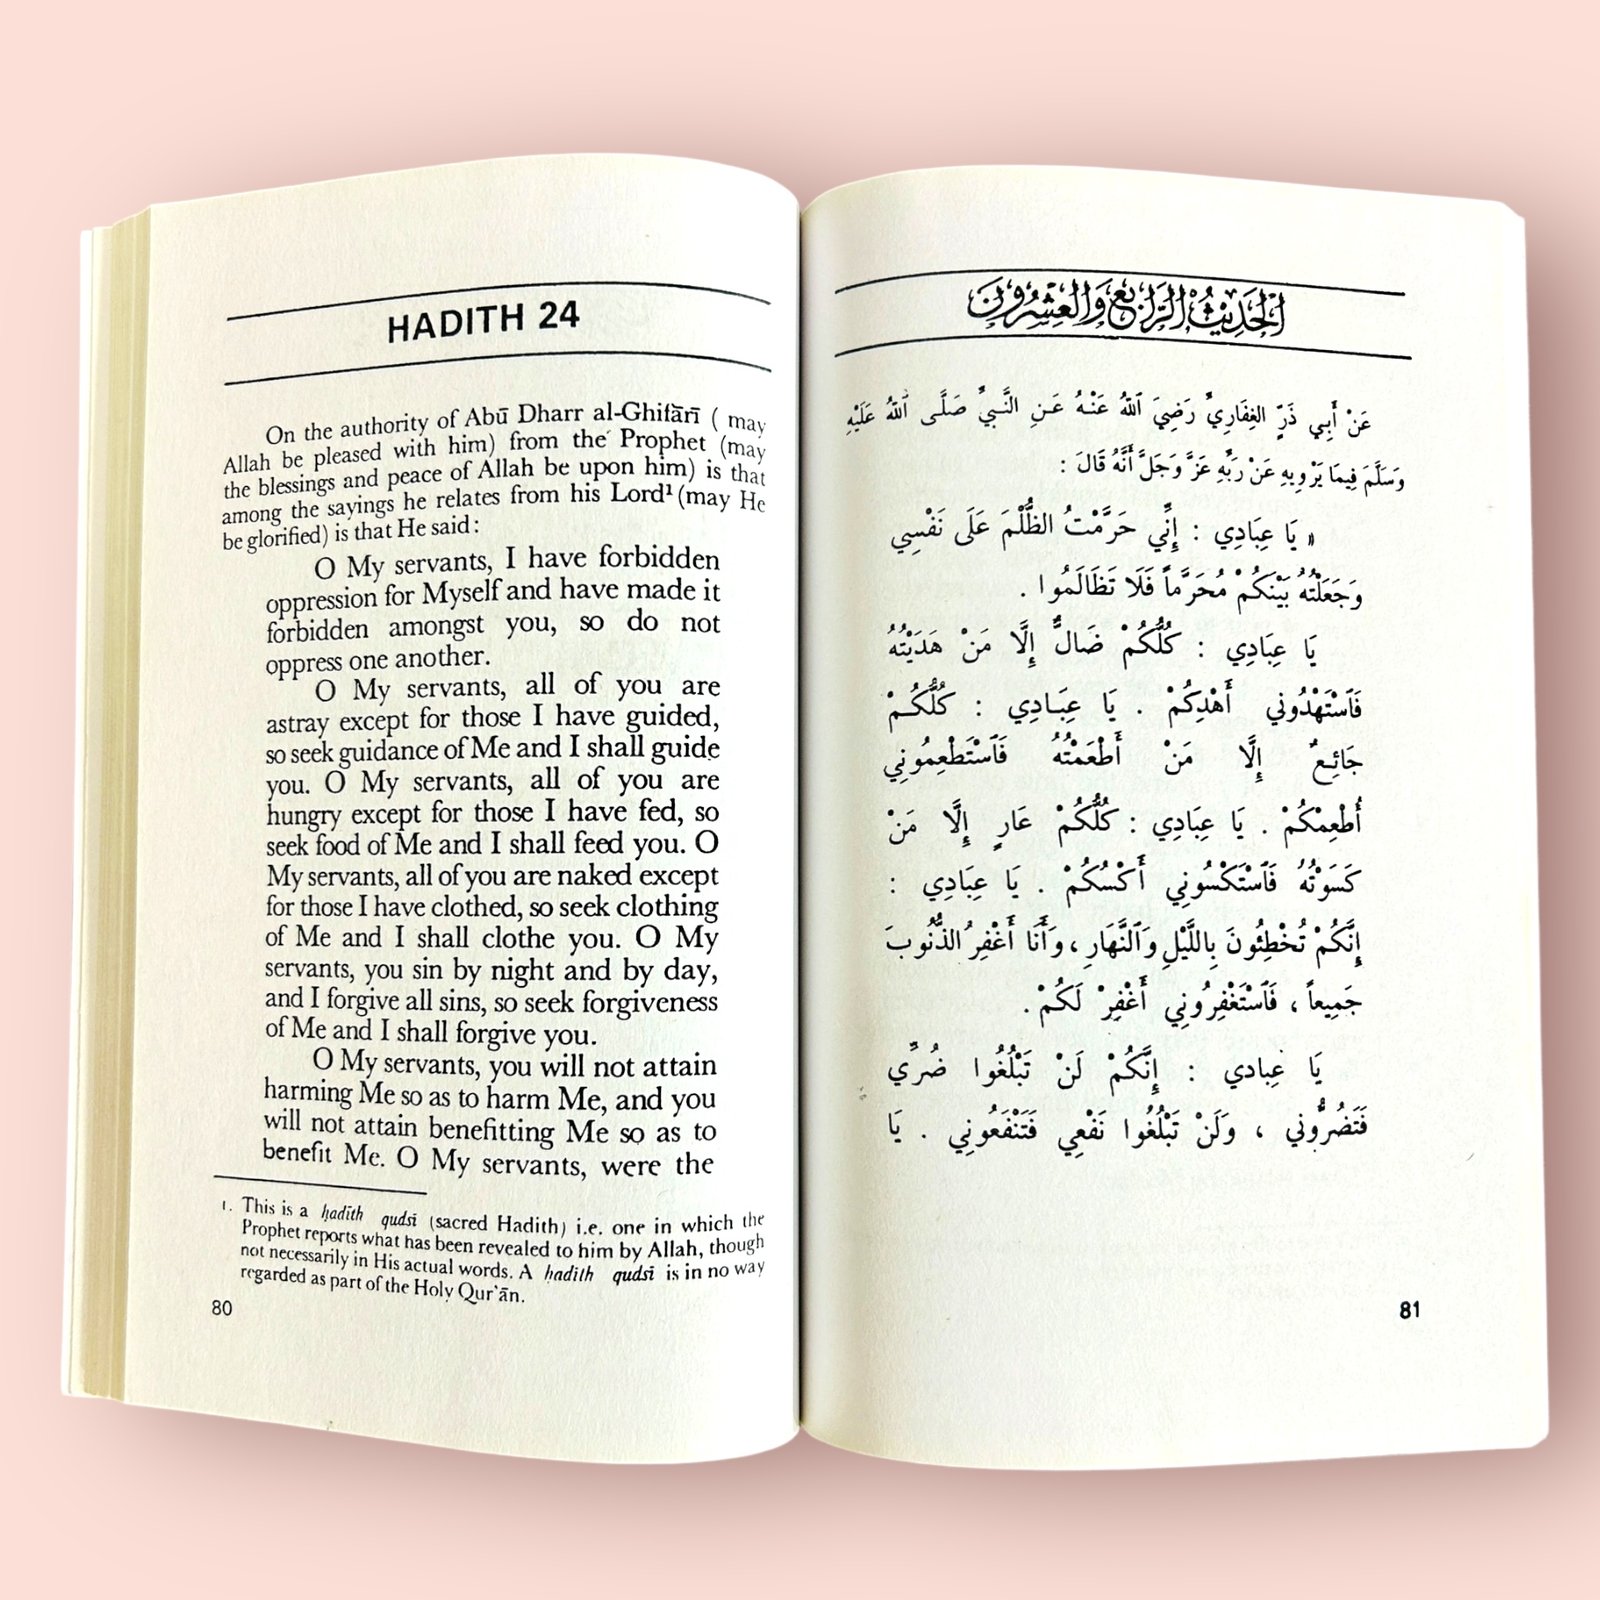 HADITH 24
On the authority of Abū Dharr al-Ghifārī ( may
Allah be pleased with him) from the Prophet (may
the blessings and peace of Allah be upon him) is that
among the sayings he relates from his Lord¹ (may He
be glorified) is that He said :
O My servants, I have forbidden
oppression for Myself and have made it
forbidden amongst you, so do not
oppress one another.
O My servants, all of you are
astray except for those I have guided,
so seek guidance of Me and I shall guide
you. O My servants, all of you are
hungry except for those I have fed, so
seek food of Me and I shall feed you. O
My servants, all of you are naked except
for those I have clothed, so seek clothing
of Me and I shall clothe you. O My
servants, you sin by night and by day,
and I forgive all sins, so seek forgiveness
of Me and I shall forgive you.
O My servants, you will not attain
harming Me so as to harm Me, and you
will not attain benefitting Me so as to
benefit Me. O My servants, were the
1. This is a ḥadīth qudsī (sacred Hadith) i.e. one in which the
Prophet reports what has been revealed to him by Allah, though
not necessarily in His actual words. A ḥadīth qudsī is in no way
regarded as part of the Holy Qur'ān.
80
الْحَدِيثُ الرَّابِعُ وَالْعِشْرُونَ
عَنْ أَبِي ذَرٍّ الغِفَارِيِّ رَضِيَ ٱللهُ عَنْهُ عَنِ النَّبِيِّ صَلَّى ٱللهُ عَلَيْهِ
وَسَلَّمَ فِيمَا يَرْوِيهِ عَنْ رَبِّهِ عَزَّ وَجَلَّ أَنَّهُ قَالَ :
« يَا عِبَادِي : إِنِّي حَرَّمْتُ الظُّلْمَ عَلَى نَفْسِي
وَجَعَلْتُهُ بَيْنَكُمْ مُحَرَّماً فَلَا تَظَالَمُوا .
يَا عِبَادِي : كُلُّكُمْ ضَالٌّ إِلَّا مَنْ هَدَيْتُهُ
فَٱسْتَهْدُونِي أَهْدِكُمْ . يَا عِبَادِي : كُلُّكُمْ
جَائِعٌ إِلَّا مَنْ أَطْعَمْتُهُ فَٱسْتَطْعِمُونِي
أُطْعِمْكُمْ . يَا عِبَادِي : كُلُّكُمْ عَارٍ إِلَّا مَنْ
كَسَوْتُهُ فَٱسْتَكْسُونِي أَكْسُكُمْ . يَا عِبَادِي :
إِنَّكُمْ تُخْطِئُونَ بِاللَّيْلِ وَٱلنَّهَارِ ، وَأَنَا أَغْفِرُ الذُّنُوبَ
جَمِيعاً ، فَٱسْتَغْفِرُونِي أَغْفِرْ لَكُمْ .
يَا عِبادي : إِنَّكُمْ لَنْ تَبْلُغُوا ضُرِّي
فَتَضُرُّونِي ، وَلَنْ تَبْلُغُوا نَفْعِي فَتَنْفَعُونِي . يَا
81